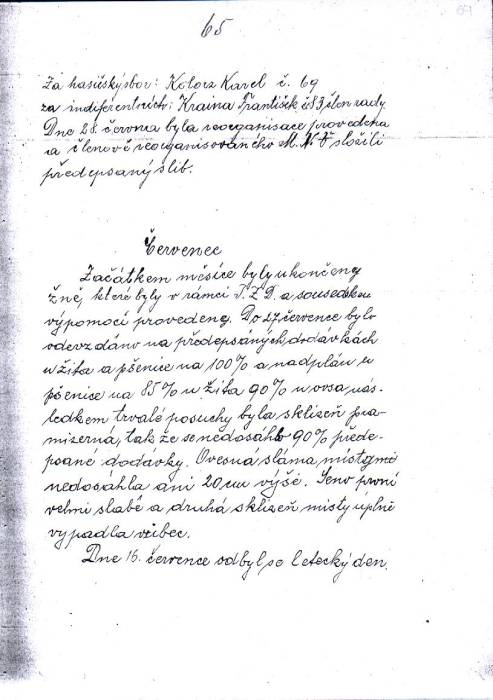 65
Za hasičský sbor: Kolocz Karel č. 69
za indiferentních: Kraina František č 83, člen rady
Dne 28. června byla reorganisace provedena
a členové reorganisovaného M.N.V složili
předepsaný slib.
Červenec
Začátkem měsíce byly ukončeny
žně, které byly v rámci J.Z.D. a sousedskou
výpomocí provedeny. Do 27 července bylo
odevzdáno na předepsaných dodávkách
u žita a pšenice na 100% a nadplán u
pšenice na 85% u žita 90% u ovsa nás-
ledkem trvalé posuchy byla sklizeň
mizerná, tak že se nedosáhlo 90% přede-
psané dodávky. Ovesná sláma místy
nedosáhla ani 20 cm výše. Seno první
velmi slabé a druhá sklizeň místy úplně
vypadla vůbec.
Dne 16. července odbyl se letecký den.